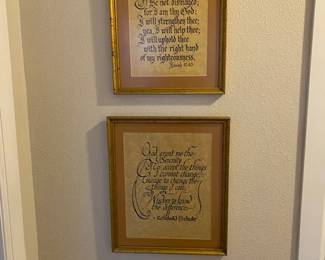 Be not dismayed;
for I am thy God:
I will strengthen thee;
yea, I will help thee;
I will uphold thee
with the right hand
of my righteousness.
Isaiah 41:10
God grant me the
Serenity
to accept the things
I cannot change;
Courage to change the
things I can;
Wisdom to know
the difference.
- Reinhold Niebuhr